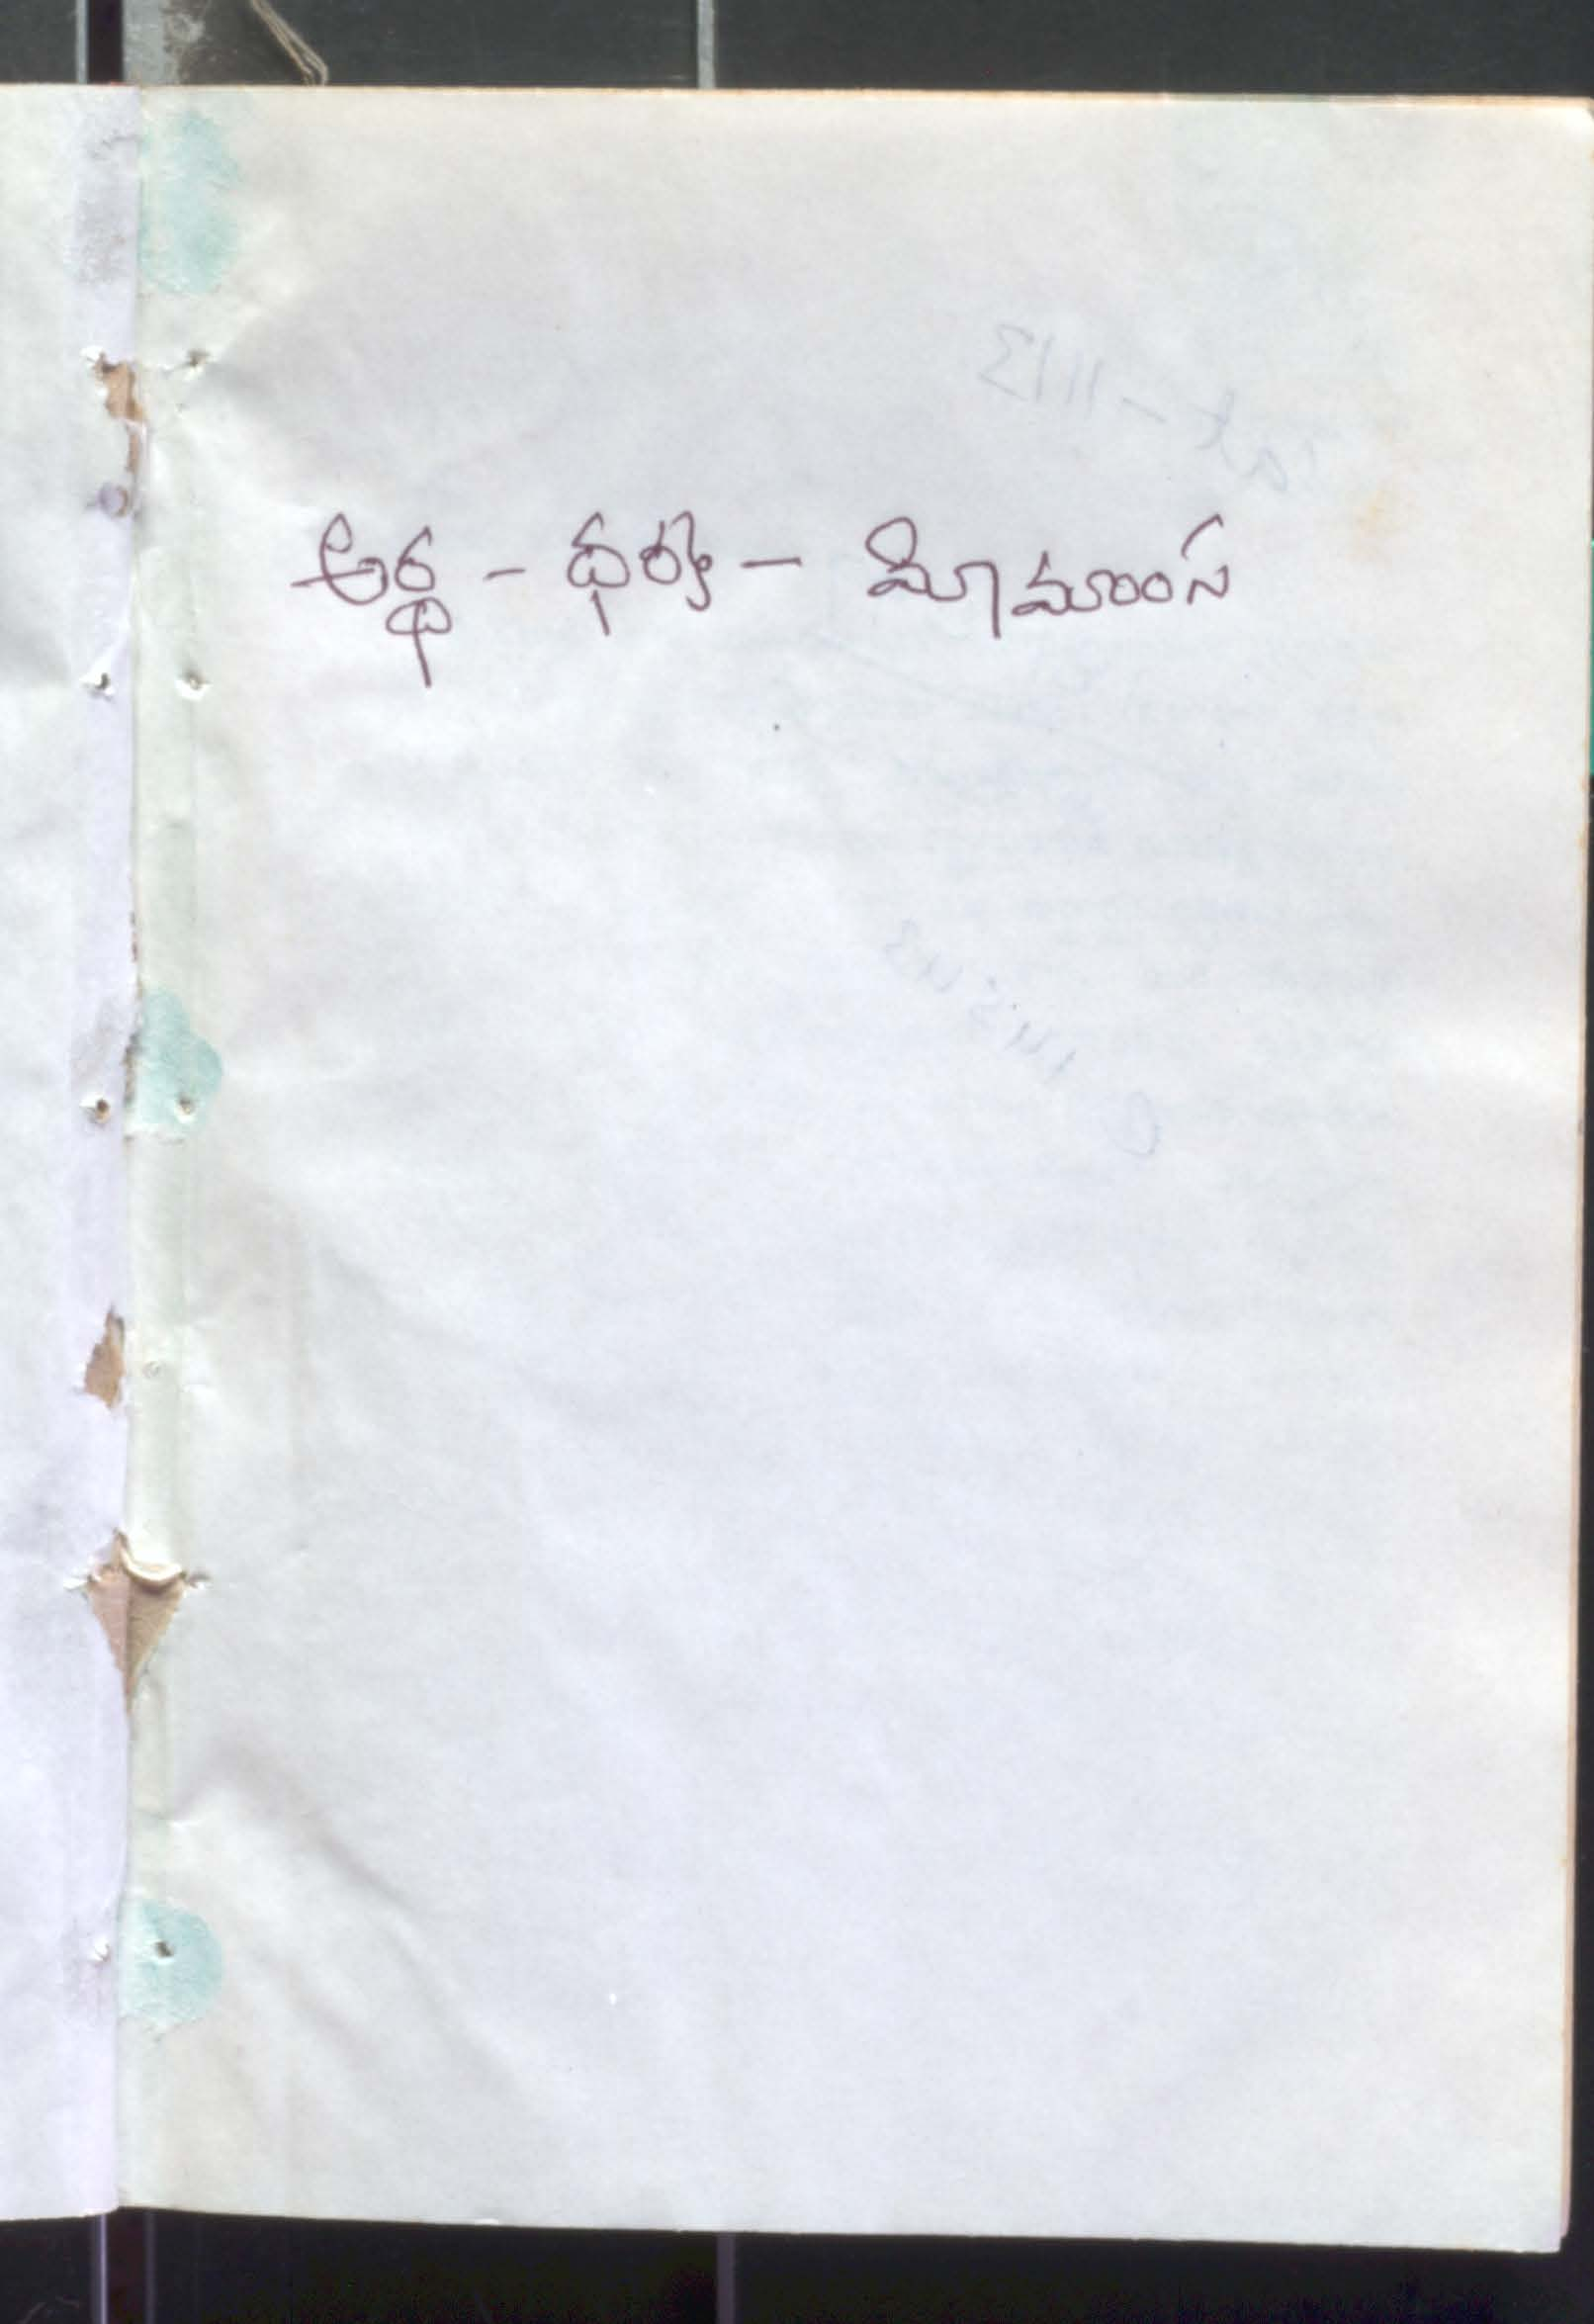 అర్థ - ధర్మ - మీమాంస